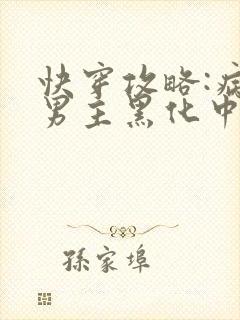 快穿攻略:病
男主黑化中
孙家埠